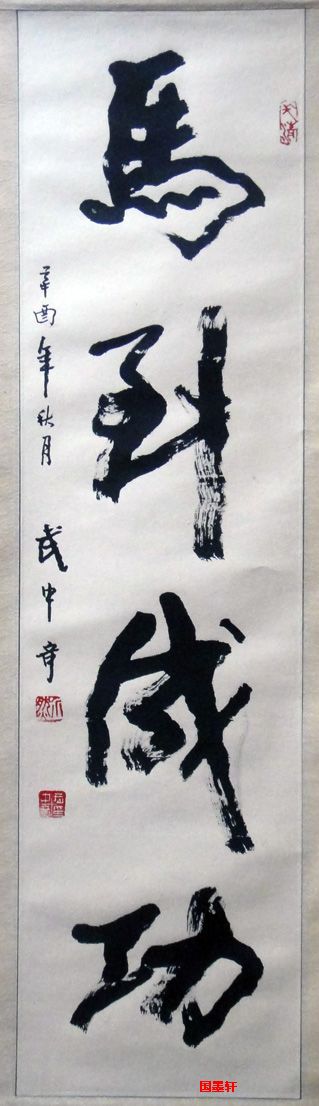 馬到成功
辛酉年秋月 武中奇
国墨轩